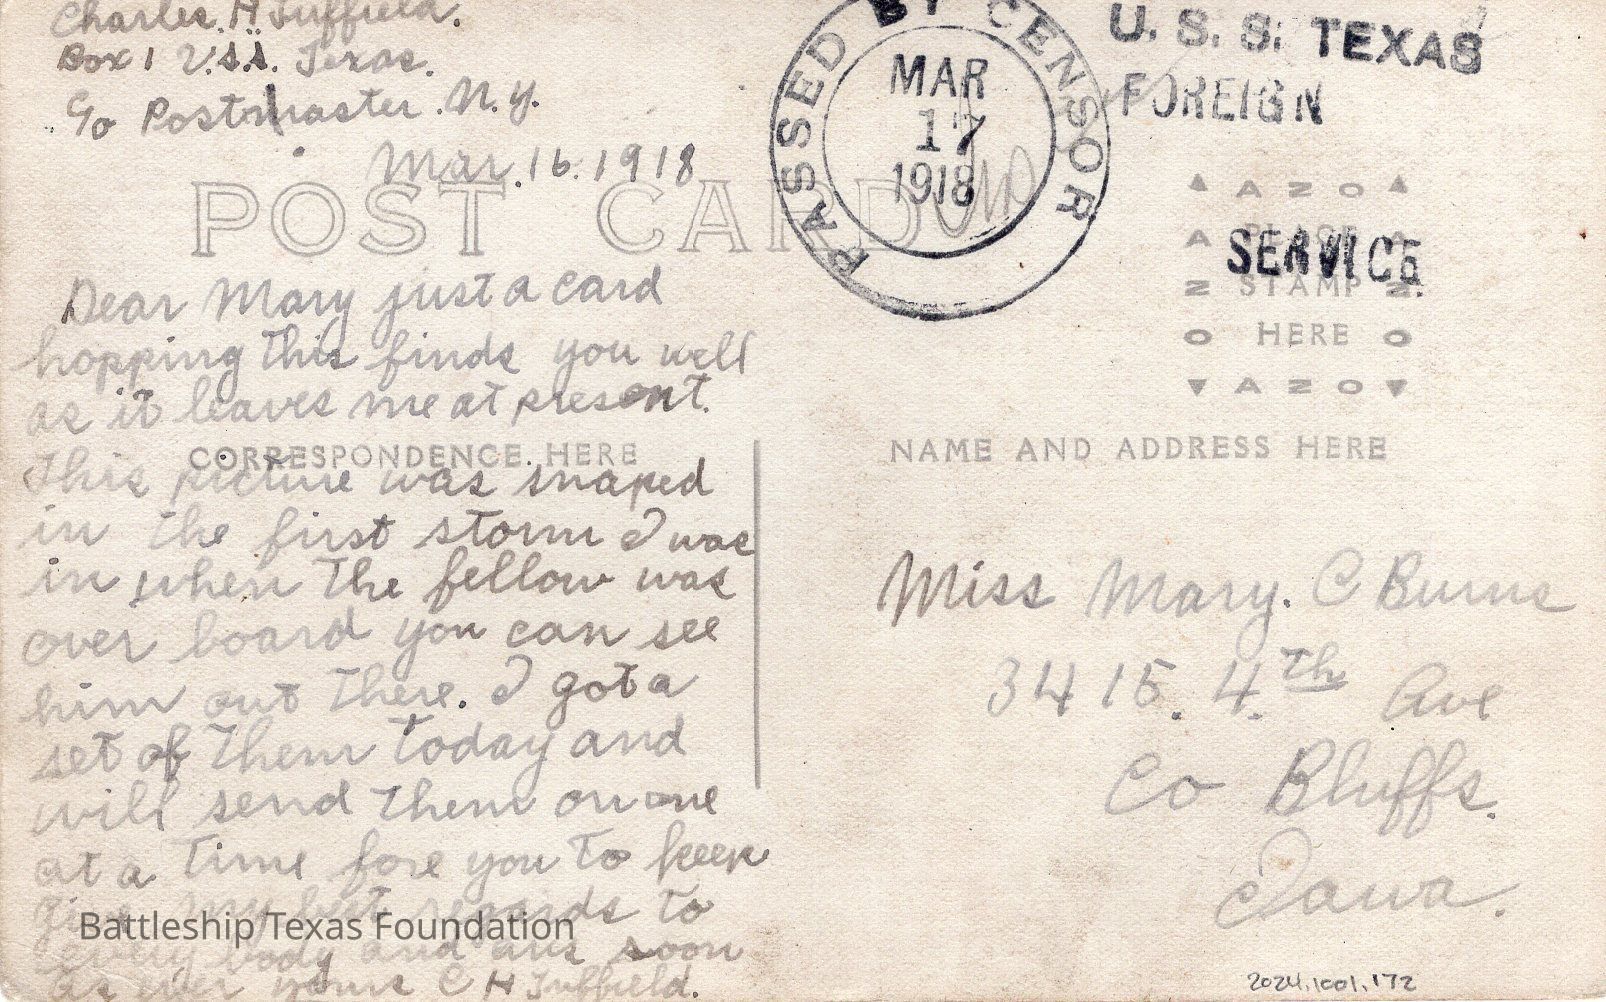 Charles. H Tuffield.
Box 1 U.S.S. Texas.
c/o Postmaster. N.Y.
Mar. 16. 1918
POST CARD
Dear Mary just a card
hopping this finds you well
as it leaves me at present.
CORRESPONDENCE HERE
This picture was snaped
in the first storm I was
in when the fellow was
over board you can see
him out there. I got a
set of them today and
will send them on one
at a time fore you to keep
give my best regards to
every body and ans soon
as ever yours C H Tuffield.
PASSED BY CENSOR
MAR
17
1918
U. S. S. TEXAS
FOREIGN
SERVICE
AZO
PLACE
STAMP
HERE
AZO
NAME AND ADDRESS HERE
Miss Mary. C Burns
3415. 4.th Ave
Co Bluffs.
Iowa.
Battleship Texas Foundation
2024.1001.172